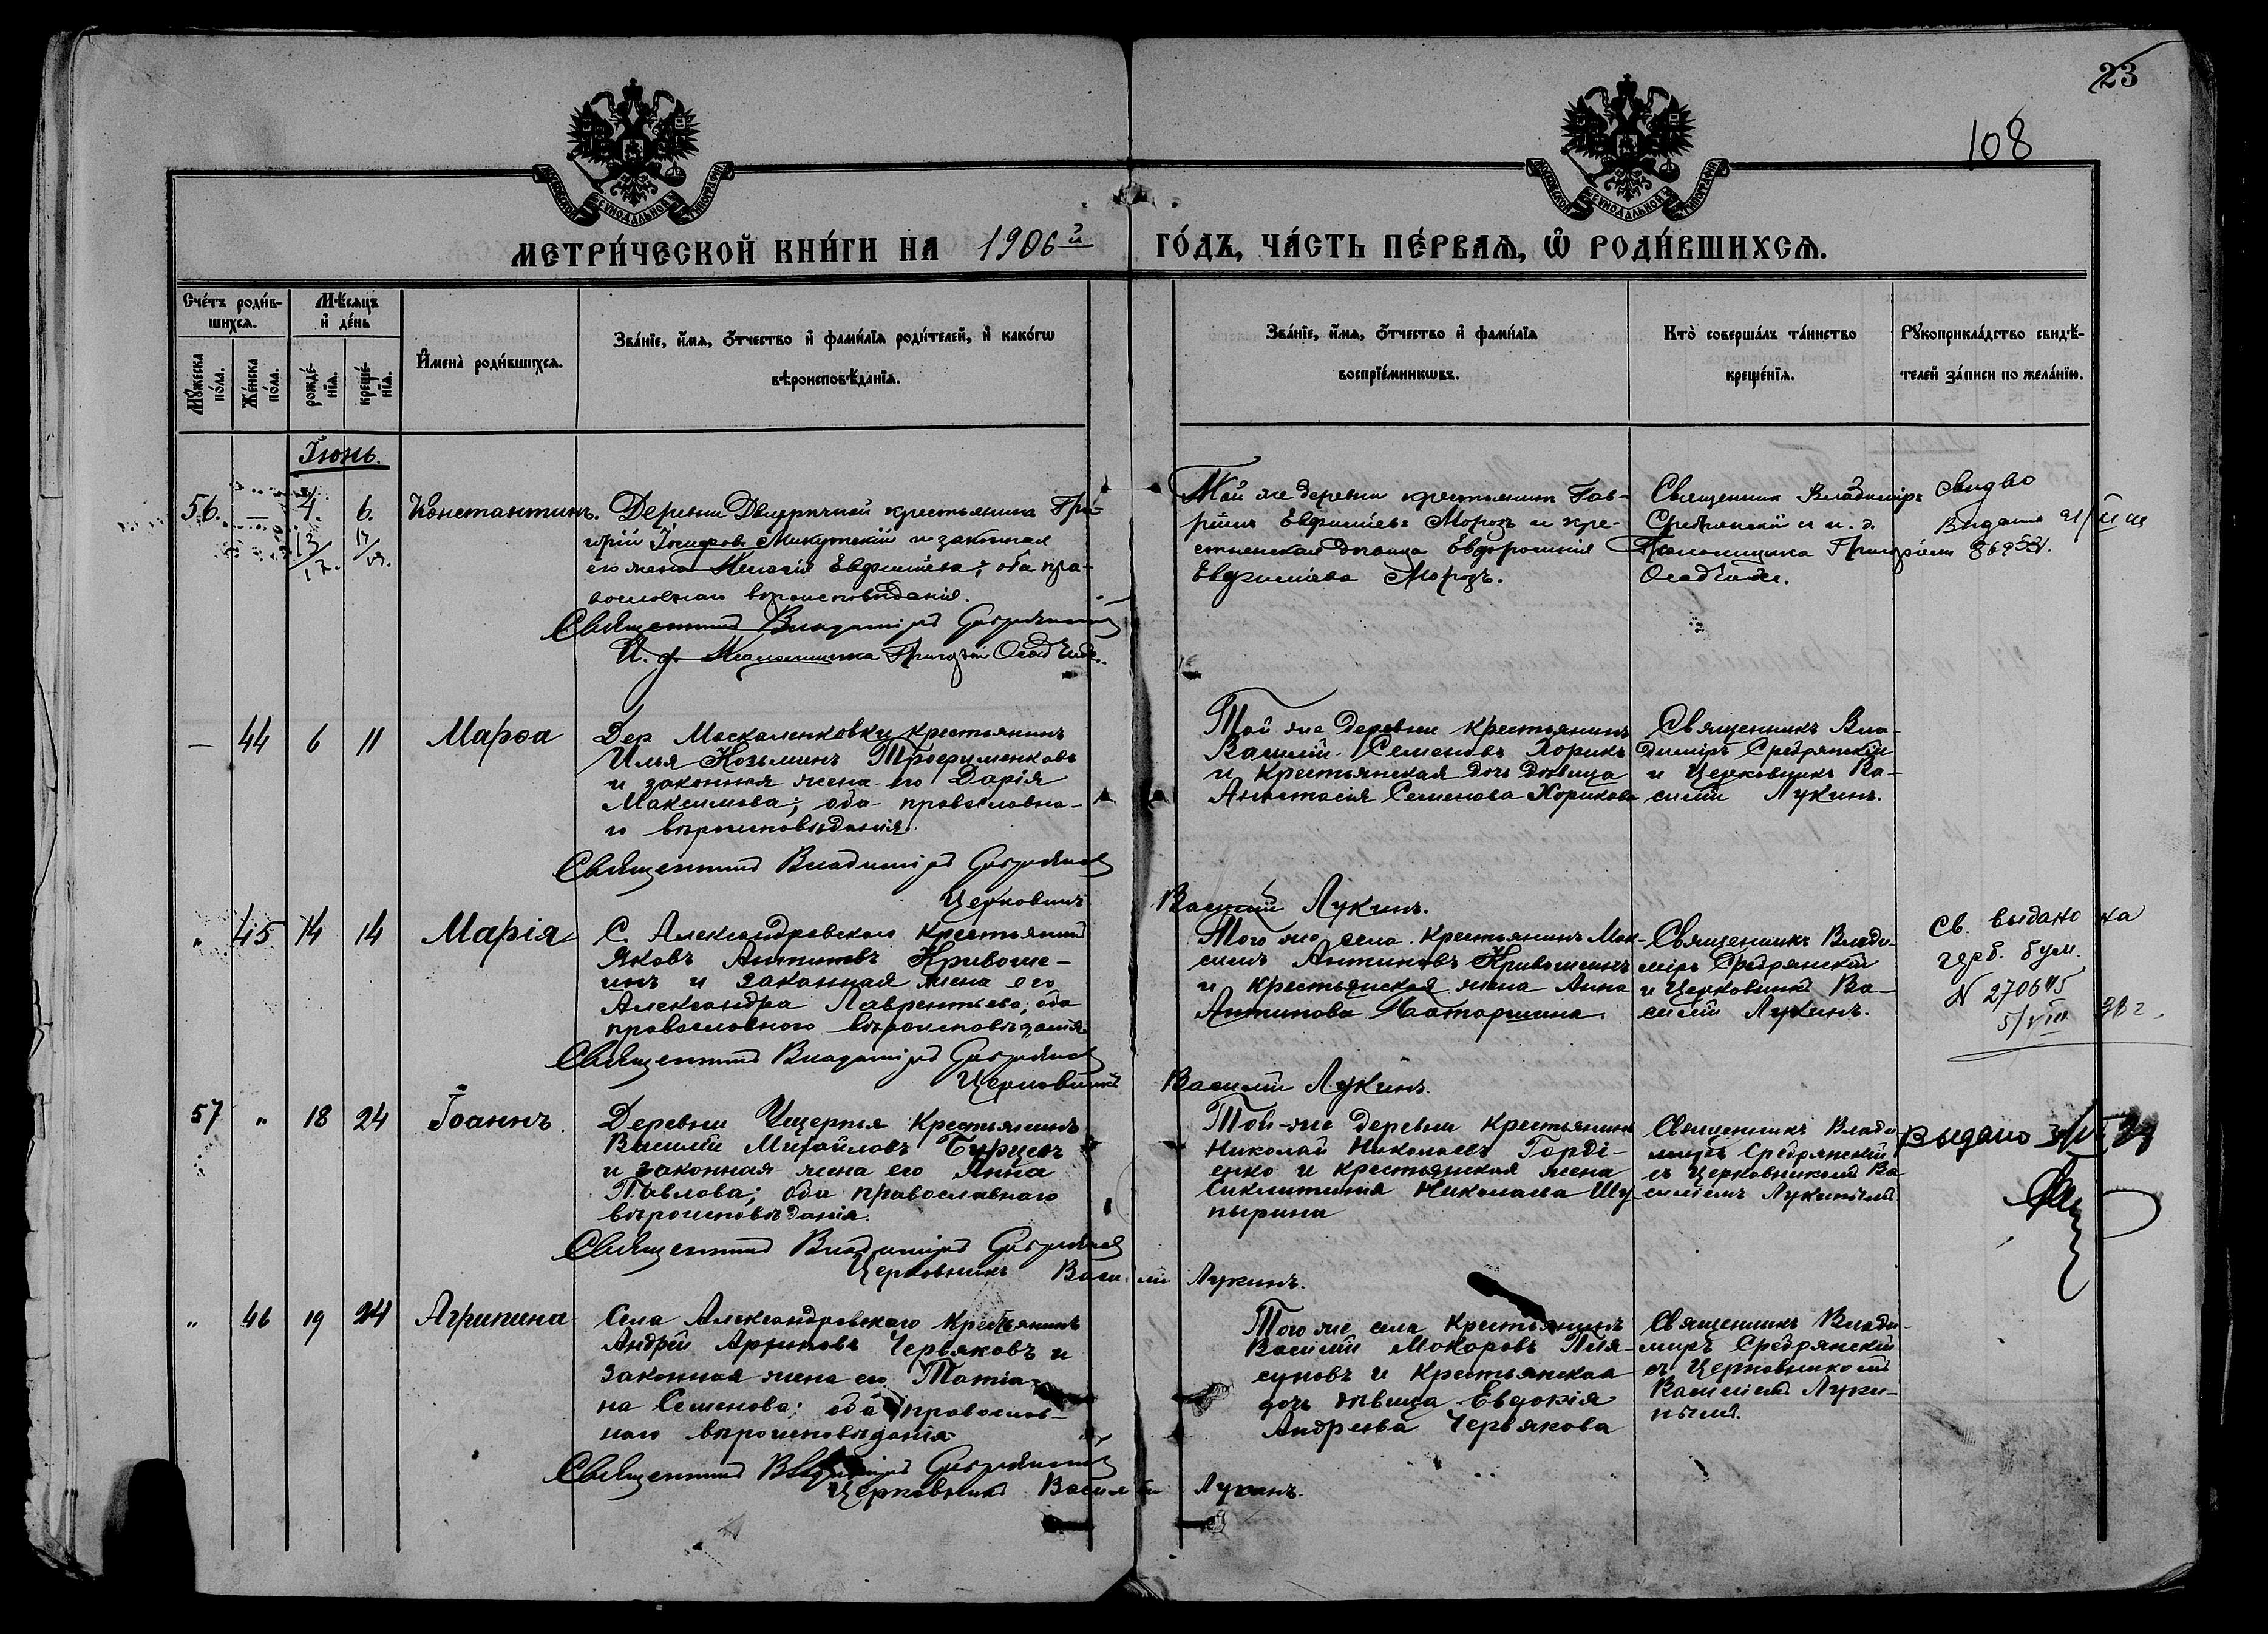 23
108
МОСКОВСКОЙ СѴНОДАЛЬНОЙ ТИПОГРАФІИ
МОСКОВСКОЙ СѴНОДАЛЬНОЙ ТИПОГРАФІИ
МЕТРИ́ЧЕСКОЙ КНИ́ГИ НА 1906й ГО́ДЪ, ЧА́СТЬ ПЕ́РВАѦ, Ѽ РОДИ́ВШИХСѦ.
Сче́тъ роди́в-
шихсѧ.
Мѣ́сѧцъ
и҆ де́нь
Мꙋ́жеска
по́ла.
Же́нска
по́ла.
рожде́-
нїѧ.
креще́-
нїѧ.
И҆мена̀ роди́вшихсѧ.
Зва́нїе, и҆́мѧ, ѻ҆́тчество и҆ фами́лїѧ роди́телей, и҆ како́гѡ
вѣроисповѣ́данїѧ.
Зва́нїе, и҆́мѧ, ѻ҆́тчество и҆ фами́лїѧ
воспрїе́мникѡвъ.
Кто̀ соверша́лъ та́инство
креще́нїѧ.
Рꙋкоприкла́дство свидѣ́-
телей за́писи по жела́нїю.
Іюнь.
56. — 4. 6. Константинъ.
Деревни крестьянинъ Гри-
горій и законная
его жена Евфиміева; оба пра-
вославнаго вѣроисповѣданія.
Священникъ Владиміръ Сребрянскій
И. д. Псаломщика Григорій
Той же деревни крестьянинъ Гав-
ріилъ Евфиміевъ Морозъ и кре-
стьянская дѣвица Евфросинія
Евфиміева Морозъ.
Священник Владиміръ
Сребрянскій и и. д.
Псаломщика Григорій
Выдано
— 44 6 11 Марѳа
Дер Москаленковки крестьянинъ
Илья Козьминъ Трофименковъ
и законная жена его Дарія
Максимова; оба православна-
го вѣроисповѣданія.
Священникъ Владиміръ Сребрянскій
Церковникъ Василій Лукинъ.
Той же Деревни крестьянинъ
Василій Семеновъ Хорикъ
и Крестьянская дочь дѣвица
Анастасія Семенова Хорикова
Священникъ Вла-
димиръ Сребрянскій
и Церковникъ Ва-
силій Лукинъ.
" 45 14 14 Марія
С. Александровскаго Крестьянинъ
Яковъ Антиповъ Кривоше-
инъ и законная жена его
Александра Лаврентьева; оба
православного вѣроисповѣданія
Священникъ Владиміръ Сребрянскій
Церковникъ Василій Лукинъ.
Того же села Крестьянинъ Мак-
симъ Антиповъ Кривошеинъ
и Крестьянская жена Анна
Антипова
Священникъ Влади-
міръ Сребрянскій
и Церковникъ Ва-
силій Лукинъ.
Св. выдано на
герб. бум.
N 270645
5/VIII 28 г.
57 " 18 24 Іоаннъ.
Деревни Крестьянинъ
Василій Михайловъ Бурцевъ
и законная жена его Анна
Павлова; оба православнаго
вѣроисповѣданія.
Священникъ Владиміръ Сребрянскій
Церковникъ Василій Лукинъ.
Той-же деревни Крестьянинъ
Николай Николаевъ Горді-
енко и Крестьянская жена
Николаева Шу-
пырина
Священникъ Влади-
міръ Сребрянскій
съ Церковникомъ Ва-
силіемъ Лукинымъ
Выдано
" 46 19 24 Агрипина
Села Александровскаго Крестьянинъ
Андрей Червяковъ и
законная жена его Татіа-
на Семенова; оба православ-
наго вѣроисповѣданія
Священникъ Владиміръ Сребрянскій
Церковникъ Василій Лукинъ.
Того же села Крестьянинъ
Василій Макаровъ
и Крестьянская
дочь дѣвица Евдокія
Андреева Червякова
Священникъ Влади-
миръ Сребрянскій
съ Церковникомъ
Василіемъ Луки-
нымъ.